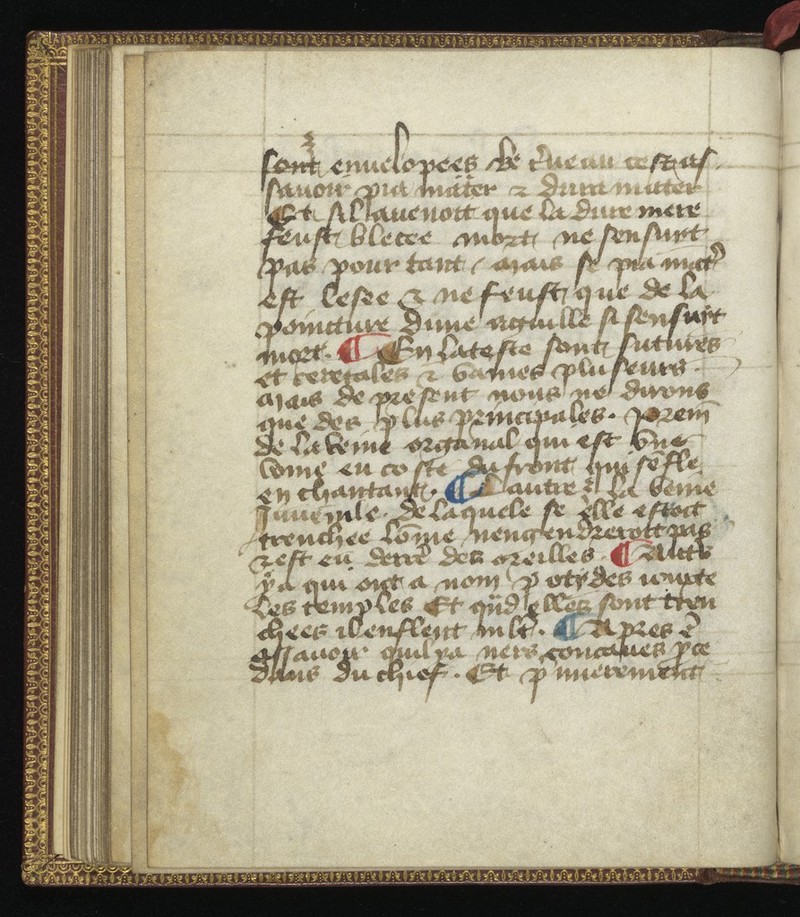 sont enuelopees de c̾ueau cest as
sauoir pia mater ⁊ dura mater
Et sil auenoit que la dure mere
feust blecee mort ne sensuit
pas pour tant / mais se pia mat̾
est lesee ⁊ ne feust que de la
pointure dune aguille si sensuit
mort. ¶ En la teste sont sutures
et ceretales ⁊ vaines pluseurs.
mais de present nous ne dirons
que des plus principales.
de la veine organal qui est vne
vome en coste du front qui sēfle
en chantant. ¶ Lautre ē la veine
Juuenile. de laquele se elle estoit
trenchee lōme nengendreroit pas
⁊ est en derrē des oreilles. ¶ Aut̾s
ya qui ont a nom potydes
les temples Et qn̄d elles sont tren
chees il enflent mlt̾. ¶ Apres ē
assauoir quil ya ners concaues
dans du chief. Et p̄mierement